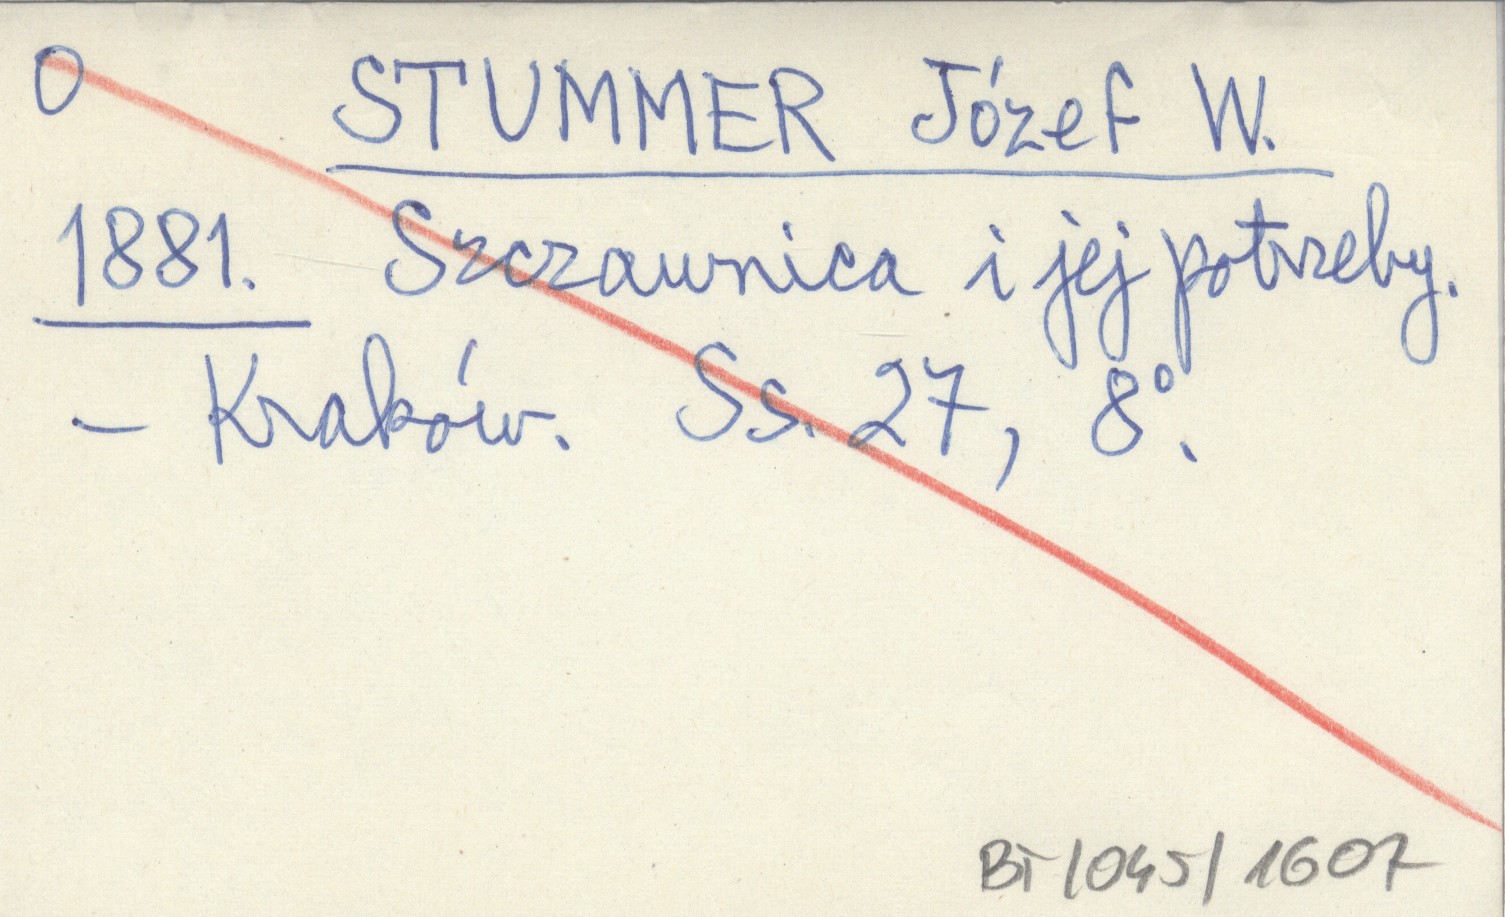 0 STUMMER Józef W.
1881. Szczawnica i jej potrzeby.
– Kraków. Ss. 27, 8°.
BT/045/1607